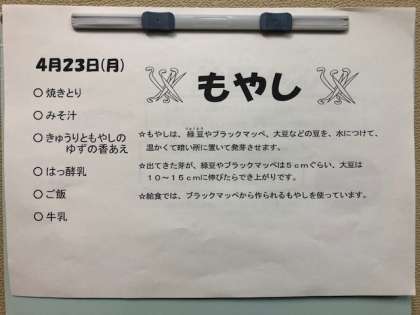 4月23日(月)
○焼きとり
○みそ汁
○きゅうりともやしの
ゆずの香あえ
○はっ酵乳
○ご飯
○牛乳
もやし
☆もやしは、緑豆やブラックマッペ、大豆などの豆を、水につけて、
温かくて暗い所に置いて発芽させます。
☆出てきた芽が、緑豆やブラックマッペは5cmぐらい、大豆は
10~15cmに伸びたらでき上がりです。
☆給食では、ブラックマッペから作られるもやしを使っています。